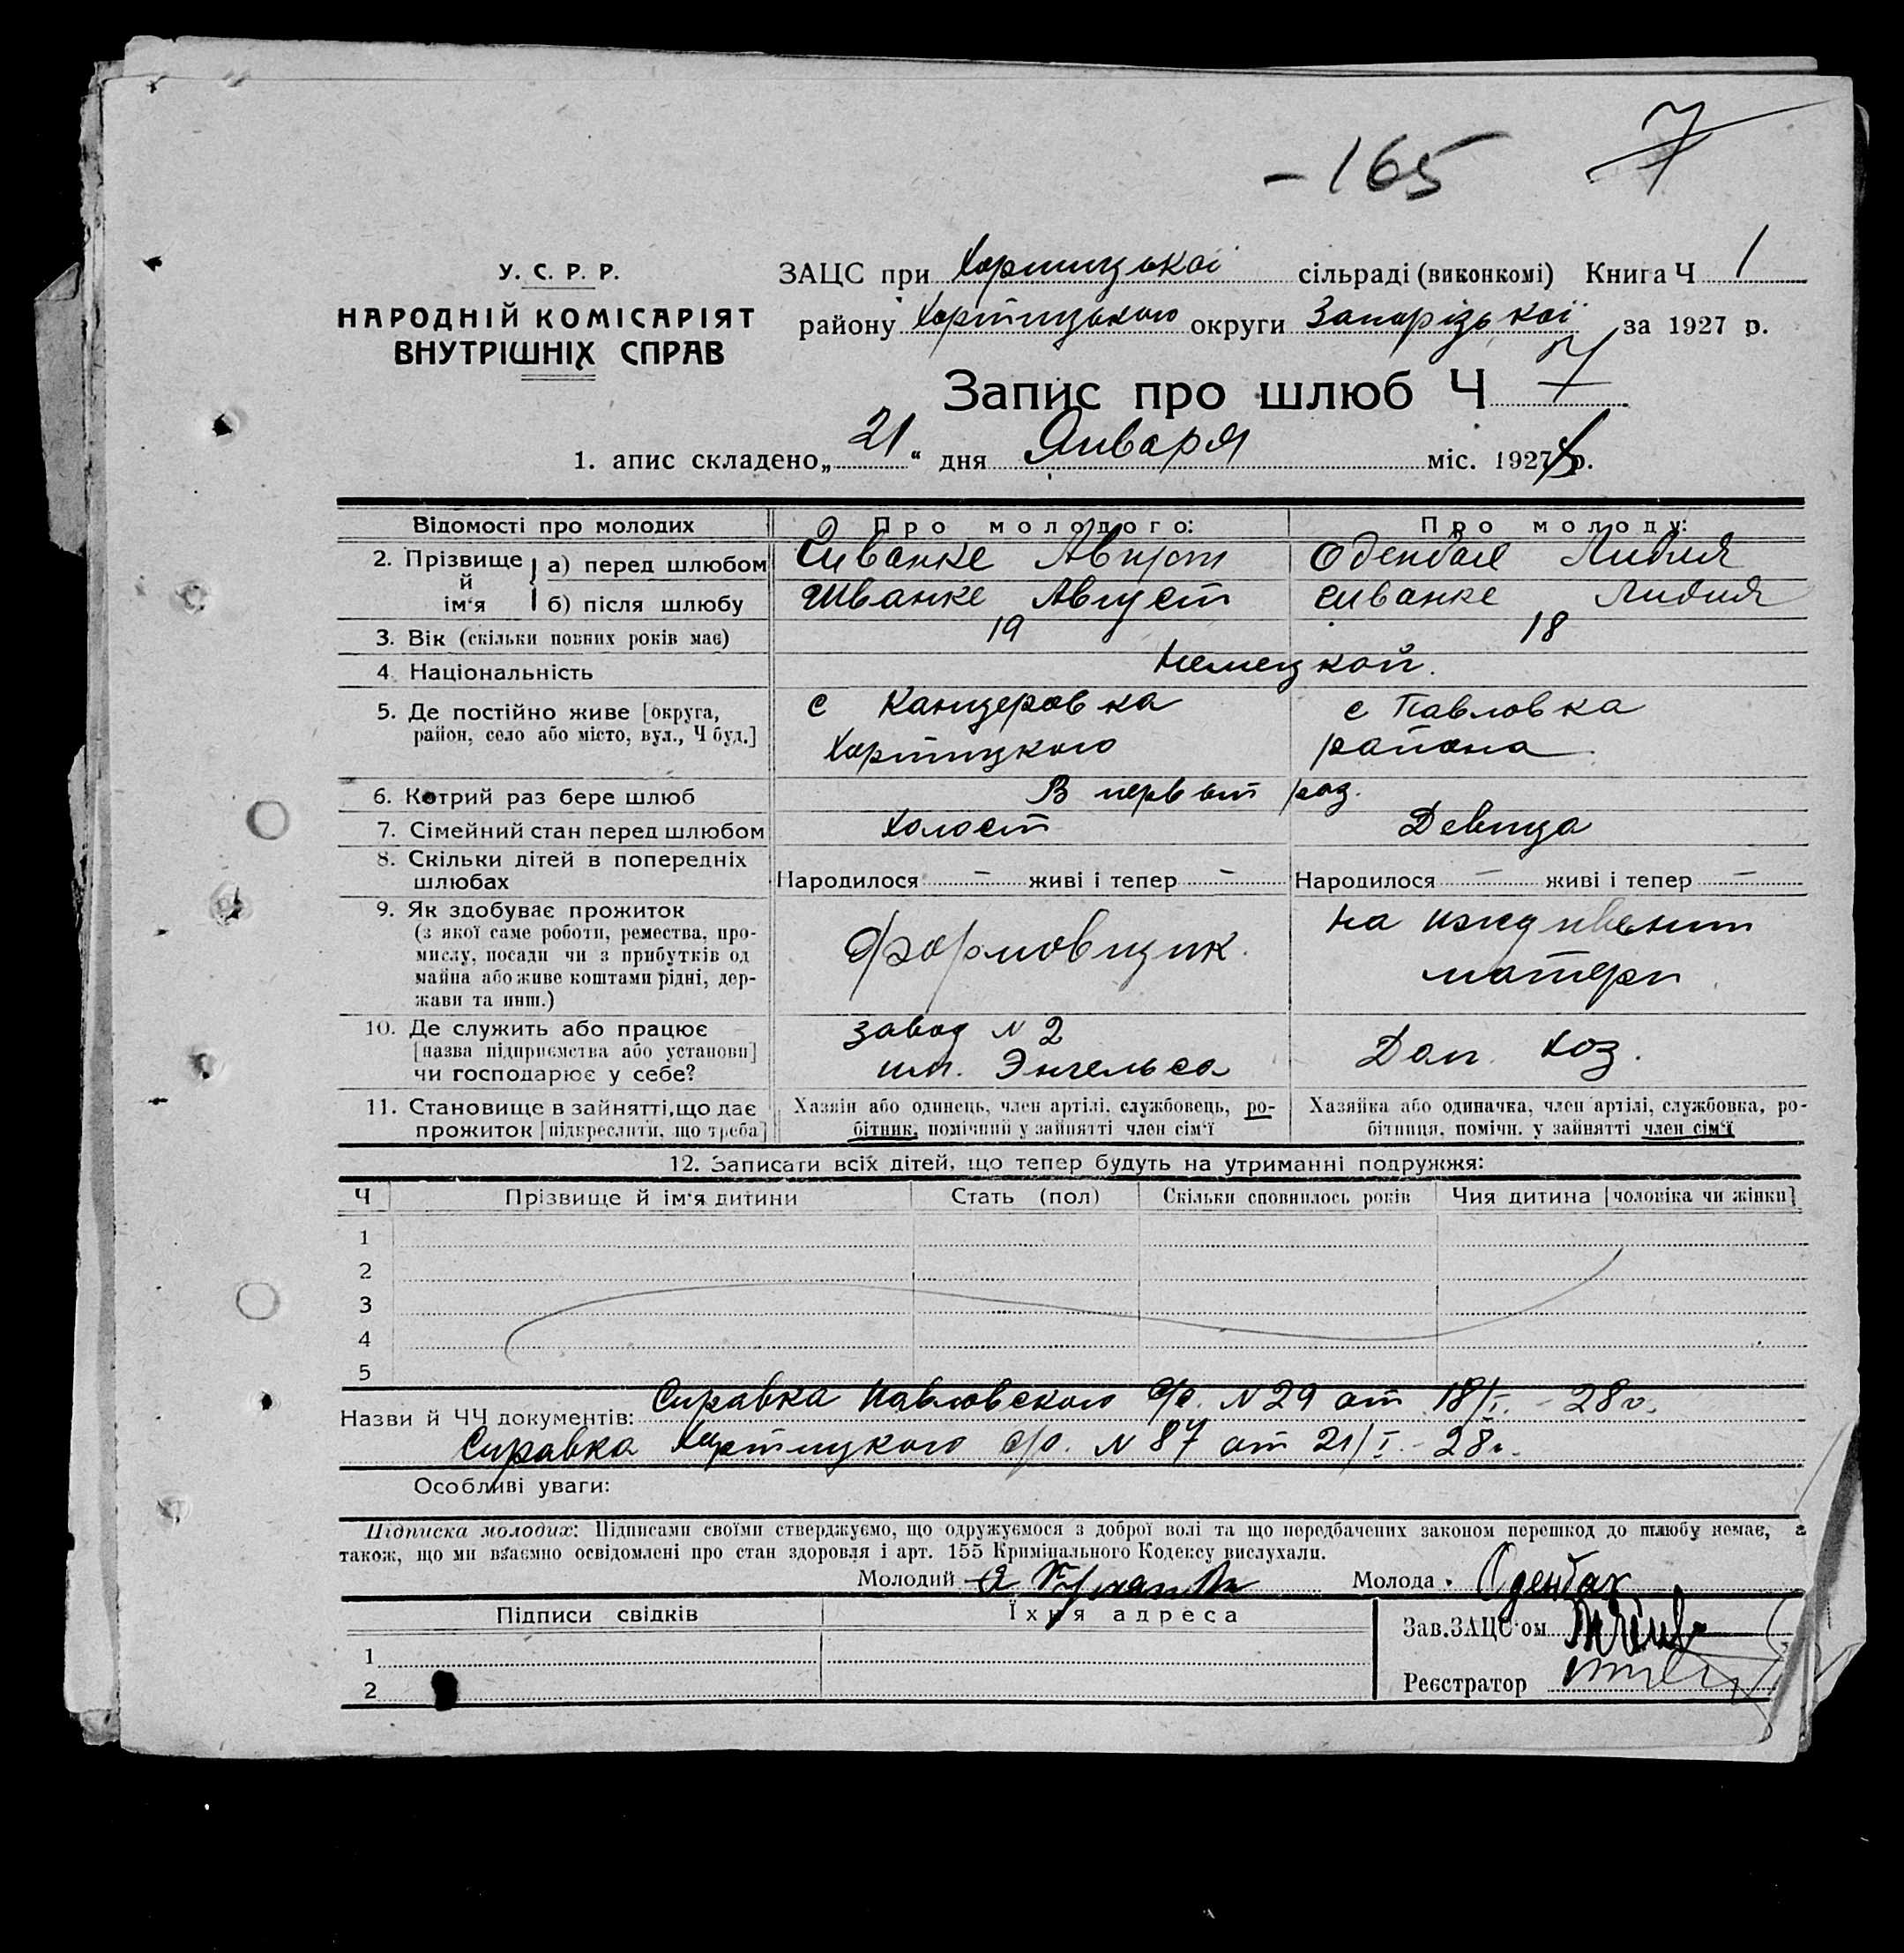 -165 7
У. С. Р. Р.
НАРОДНІЙ КОМІСАРІЯТ
ВНУТРІШНІХ СПРАВ
ЗАЦС при Хортицькоі сільраді (виконкомі) Книга Ч 1
району Хортицького округи Запорізькоі за 1927 р.
Запис про шлюб Ч 7
1. апис складено „21“ дня Января міс. 1928 р.
Відомості про молодих Про молодого: Про молоду:
2. Прізвище й ім'я а) перед шлюбом Шванке Август Оденбах Лидия
б) після шлюбу Шванке Август Шванке Лидия
3. Вік (скільки повних років має) 19 18
4. Національність Немецкой.
5. Де постійно живе [округа, с Канцеровка с Павловка
район, село або місто, вул., Ч буд.] Хортицкого района.
6. Котрий раз бере шлюб В первый раз.
7. Сімейний стан перед шлюбом Холост Девица
8. Скільки дітей в попередніх
шлюбах Народилося — живі і тепер — Народилося — живі і тепер —
9. Як здобуває прожиток
(з якої саме роботи, ремества, про-
мислу, посади чи з прибутків од
майна або живе коштами рідні, дер-
жави та инш.)
Формовщик.
на иждивении
матери
10. Де служить або працює
[назва підприємства або установи]
чи господарює у себе?
завод N 2
им. Энгельса
Дом. хоз.
11. Становище в зайнятті, що дає
прожиток [підкреслити, що треба]
Хазяін або одинець, член артілі, службовець, ро-
бітник, помічний у зайнятті член сім'ї
Хазяйка або одиначка, член артілі, службовка, ро-
бітниця, помічн. у зайнятті член сім'ї
12. Записати всіх дітей, що тепер будуть на утриманні подружжя:
Ч Прізвище й ім'я дитини Стать (пол) Скільки сповнилось років Чия дитина [чоловіка чи жінки]
1
2
3
4
5
Назви й ЧЧ документів: Справка Павловского с/с. N 29 от 18/I. - 28 г.
Справка Хортицкого с/с. N 87 от 21/I. - 28 г.
Особливі уваги:
Підписка молодих: Підписами своїми стверджуємо, що одружуємося з доброї волі та що передбачених законом перешкод до шлюбу немає, а
також, що ми взаємно освідомлені про стан здоровля і арт. 155 Кримінального Кодексу вислухали.
Молодий Молода Оденбах
Підписи свідків Їхня адреса
Зав. ЗАЦС'ом
1
2
Реєстратор